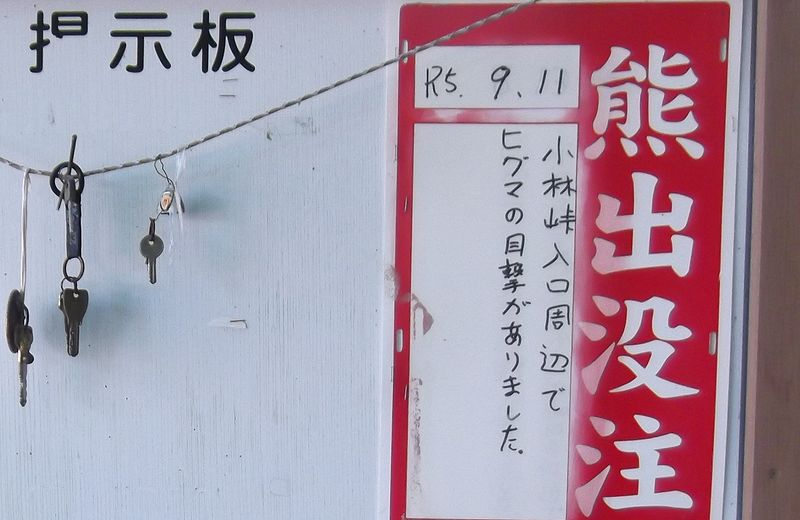 掲示板
熊出没注
R5. 9. 11
小林峠入口周辺で
ヒグマの目撃がありました。